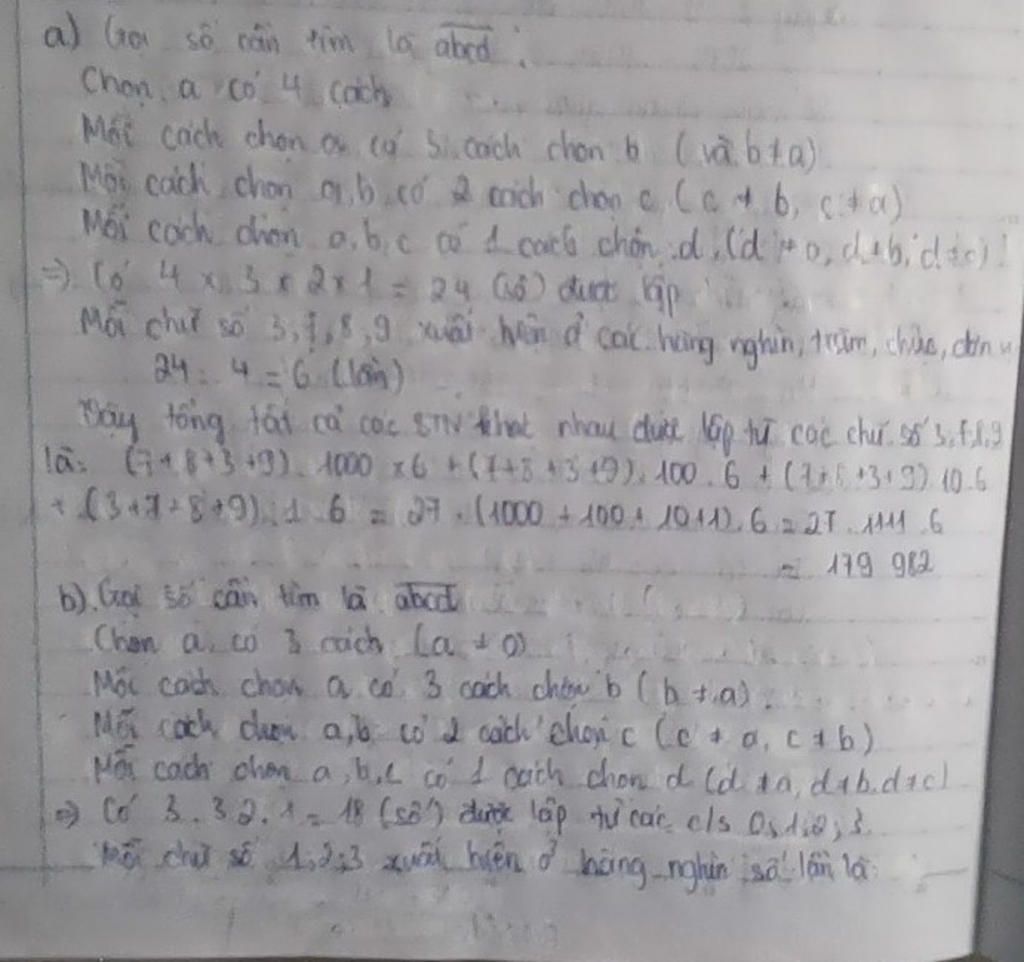 a) Gọi số cần tìm là abcd.
Chọn a có 4 cách
Mỗi cách chọn a có 3 cách chọn b (và b≠a)
Mỗi cách chọn a,b có 2 cách chọn c (c ≠ b, c ≠ a)
Mỗi cách chọn a,b,c có 1 cách chọn d (d ≠ a, d≠b, d≠c)
=> Có 4 x 3 x 2 x 1 = 24 (số) được lập
Mỗi chữ số 3,7,8,9 xuất hiện ở các hàng nghìn, trăm, chục, đơn v
24 : 4 = 6 (lần)
Vậy tổng tất cả các STN khac nhau được lập từ các chữ số 3,7,8,9
là: (7+8+3+9). 1000 x6 + (7+8+3+9). 100 . 6 + (7+8+3+9).10.6
+ (3+7+8+9).1.6 = 27.(1000 + 100 + 10+1).6 = 27.1111.6
= 179 982
b). Gọi số cần tìm là abcd
Chọn a có 3 cách (a ≠ 0)
Mỗi cách chọn a có 3 cách chọn b (b ≠ a)
Mỗi cách chọn a,b có 2 cách chọn c (c ≠ a, c ≠ b)
Mỗi cách chọn a,b,c có 1 cách chọn d (d ≠a, d≠b,d≠c)
=> Có 3.3 2.1 = 18 (số) được lập từ các c/s 0;1;2;3
Mỗi chữ số 1;2;3 xuất hiện ở hàng nghìn số lần là: